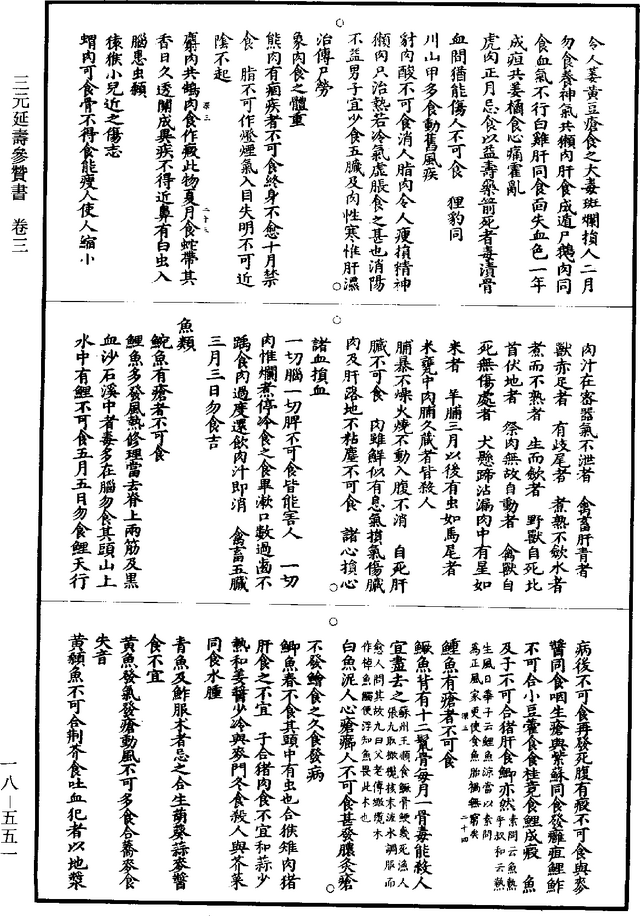 三元延壽參贊書　卷三
令人萎黃豆瘡食之大毒斑爛損人二月
勿食養神氣共獺肉肝食成遁尸鵝肉同
食血氣不行白雞肝同食面失血色一年
成疸共姜橘食心痛霍亂
虎肉正月忌食以益壽藥箭死者毒漬骨
血間猶能傷人不可食　狸豹同
川山甲多食動舊風疾
豺肉酸不可食消人脂肉令人瘦損精神
獺肉只治熱若冷氣虛脹食之甚也消陽
不益男子宜少食五臟及肉性寒惟肝溫
治傳尸勞
象肉食之體重
熊肉有痼疾者不可食終身不愈十月禁
食　脂不可作燈煙氣入目失明不可近
陰不起
麝肉共鵠肉食作癥此物夏月食蛇帶其
香日久透關成異疾不得近鼻有白虫入
腦患虫顙
猿猴小兒近之傷志
蝟肉可食骨不得食能瘦人使人縮小
肉汁在密器氣不泄者　禽畜肝青者
獸赤足者　有歧尾者　煮熟不斂水者
煮而不熟者　生而斂者　野獸自死北
首伏地者　祭肉無故自動者　禽獸自
死無傷處者　犬懸蹄沾漏肉中有星如
米者　羊脯三月以後有虫如馬尾者
米甕中肉脯久藏者皆殺人
脯暴不燥火燻不動入腹不消　自死肝
臟不可食　肉雖鮮似有息氣損氣傷臟
肉及肝落地不粘塵不可食　諸心損心
諸血損血
一切腦一切脾不可食皆能害人　一切
肉惟爛煮停冷食之食畢漱口數過齒不
齲食肉過度還飲肉汁即消　禽畜五臟
三月三日勿食吉
魚類
鯇魚有瘡者不可食
鯉魚多發風熱修理當去脊上兩筋及黑
血沙石溪中者毒多在腦勿食其頭山上
水中有鯉不可食五月五日勿食鯉天行
病後不可食再發死腹有癥不可食與麥
醬同食咽生瘡與紫蘇同食發癰疽鯉鮓
不可合小豆藿食食桂竟食鯉成瘕　魚
及子不可合猪肝食鯽亦然素問云魚熱中叔和云熱
生風日華子云鯉魚涼當以素問
為正風家更使食魚貽禍無窮矣
鱧魚有瘡者不可食
鱖魚背有十二鬐骨每月一骨毒能殺人
宜盡去之
白魚泥人心瘡癤人不可食甚發膿灸瘡
不發鱠食之久食發病
鯽魚春不食其頭中有虫也合猴雉肉猪
肝食之不宜　子合猪肉食不宜和蒜少
熱和姜醬少冷與麥門冬食殺人與芥菜
同食水腫
青魚及鮓服朮者忌之合生葫荽蒜麥醬
食不宜
黃魚發氣發瘡動風不可多食合蕎麥食
失音
黃顙魚不可合荊芥食吐血犯者以地漿
一八－五五一